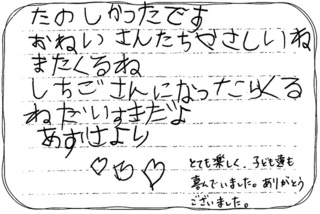 たのしかったです
おねいさんたちやさしいね
またくるね
しちごさんになったらくる
ねだいすきだよ
あずさより
とても楽しく、子ども達も
喜んでいました。ありがとう
ございました。